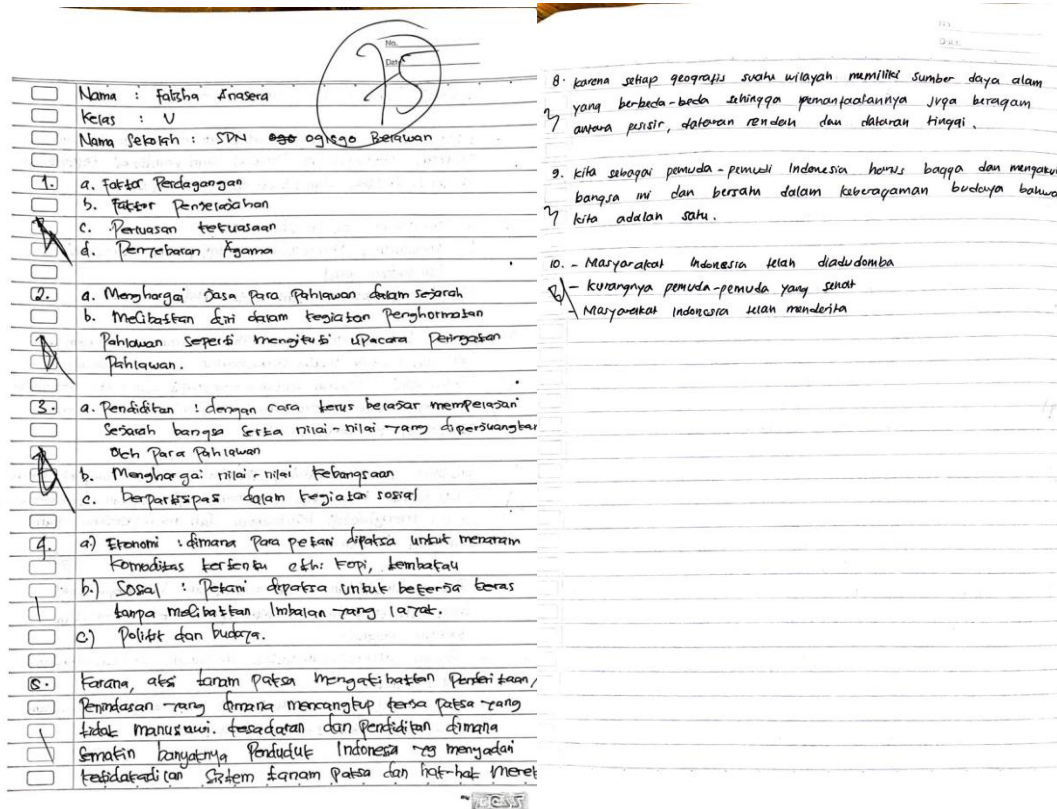 No.
Date
75
Nama : Faisha Anasera
Kelas : V
Nama Sekolah : SDN ogo ogisgo Berawan
1. a. faktor Perdagangan
b. faktor Penjelajahan
c. Perluasan kekuasaan
d. Penyebaran Agama
2. a. Menghargai Jasa para Pahlawan dalam sejarah
b. Melibatkan diri dalam kegiatan Penghormatan
Pahlawan seperti mengikuti upacara Peringatan
Pahlawan.
3. a. Pendidikan : dengan cara terus belajar mempelajari
Sejarah bangsa serta nilai-nilai yang diperjuangkan
oleh Para Pahlawan
b. Menghargai nilai-nilai kebangsaan
c. berpartisipas dalam kegiatan sosial
4. a.) Ekonomi : dimana Para petani dipaksa untuk menanam
Komoditas tertentu cth: kopi, tembakau
b.) Sosial : Petani dipaksa untuk bekerja keras
tanpa melibatkan Imbalan yang layak.
c.) Politik dan budaya.
5. Karana, aksi tanam paksa mengakibatkan Penderitaan,
Penindasan yang dimana mencangkup kerja paksa yang
tidak manusiawi. kesadaran dan Pendidikan dimana
semakin banyaknya Penduduk Indonesia yg menyadari
ketidakadilan Sistem tanam paksa dan hak-hak Merek
8. karena setiap geografis suatu wilayah memiliki sumber daya alam
yang berbeda-beda sehingga pemanfaatannya juga beragam
antara pesisir, dataran rendah dan dataran tinggi.
9. kita sebagai pemuda-pemudi Indonesia harus bagga dan mengakui
bangsa ini dan bersatu dalam keberagaman budaya bahwa
kita adalah satu.
10. - Masyarakat Indonesia telah diadudomba
- kurangnya pemuda-pemuda yang sehat
- Masyarakat Indonesia telah menderita